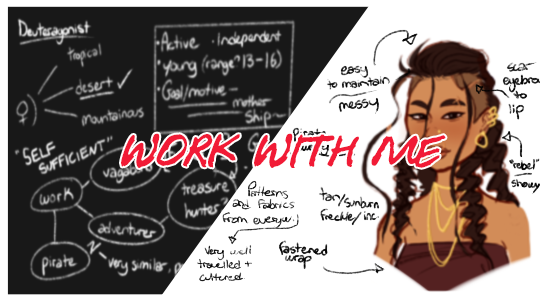 Deuteragonist
tropical
desert ✓
mountainous
• Active • Independent
• young (range° 13-16)
• Goal/motive—
mother
ship
"SELF
SUFFICIENT"
work
treasure
hunter
adventurer
pirate
very similar,
WORK WITH ME
easy
to maintain
messy
scar
eyebrow
to
lip
Pirate
"rebel"
showy
Patterns
and Fabrics
From everyw
tan/sunburn
freckle/inc.
Very well
travelled +
cultured
fastened
wrap